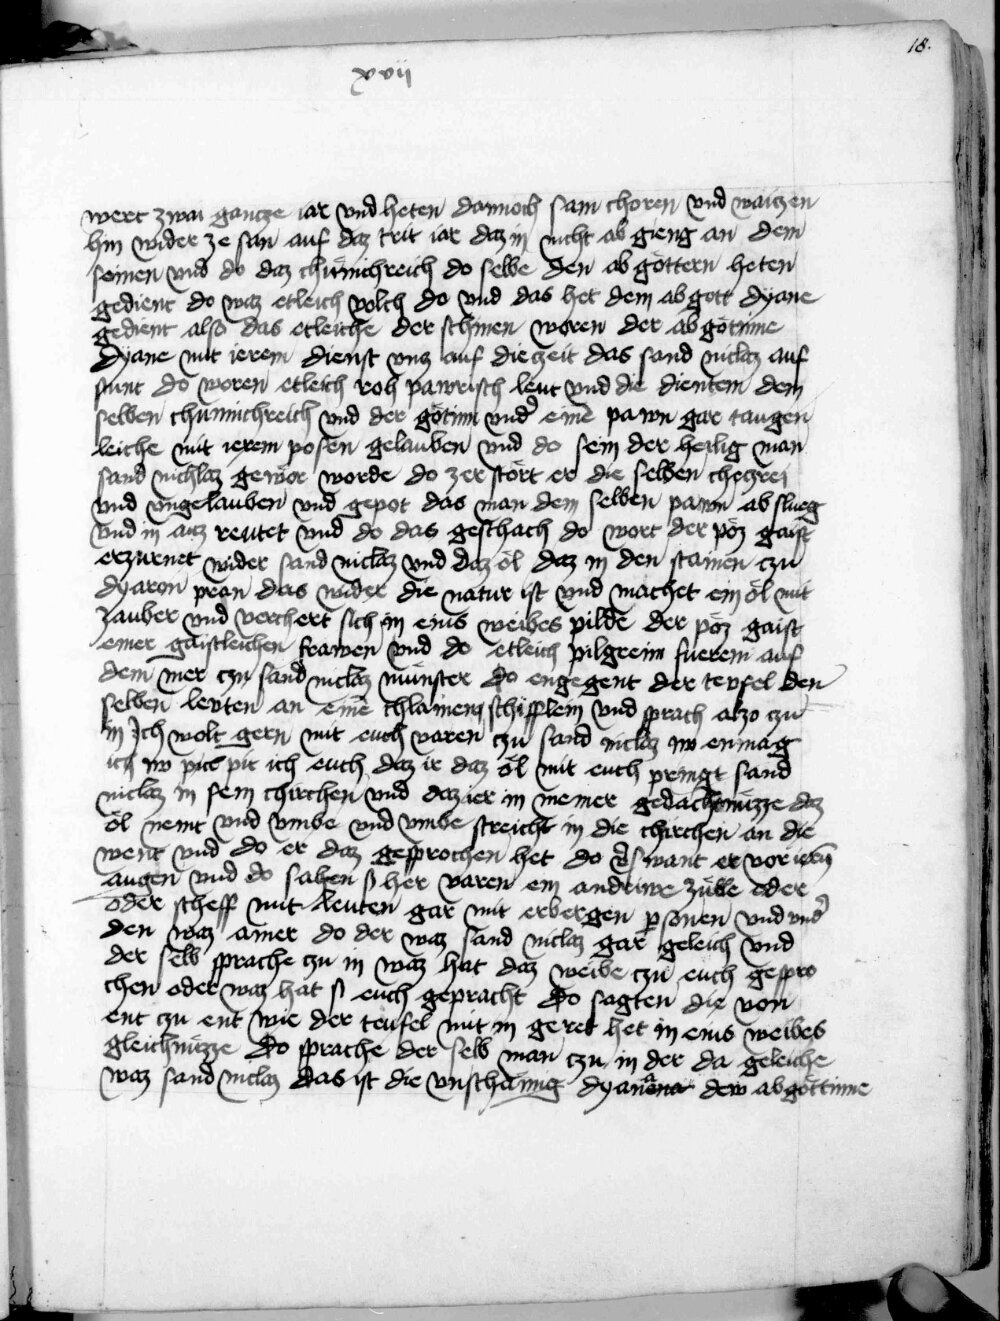 18.
xvii
wert zwai gancze iar vnd heten dannoch sam choren vnd waiczen
hin wider ze san auf daz trit iar daz in nicht ab gieng an dem
seinen vnd do daz chünichreich do selbe den ab göttern heten
gedient do waz etleich volch do vnd das het dem ab gott dyane
gedient also das etleiche der schinen woren der ab götinne
dyane mit ierem dienst vncz auf die zeit das sand niclaz auf
stunt do woren etleich roh pawrisch leut vnd die dientem dem
selben chunnichreich vnd der götinn vnd' eine pawn gar taugen
leiche mit ierem posen gelauben vnd do sein der heilig man
sand nichlaz gewor worde do zer stört er die selben checzrei
vnd vngelauben vnd gepot das man den selben pawm ab slueg
vnd in aus reutet vnd do das geschach do wort der pöz gaist
erzurnet wider sand niclaz vnd daz öl daz in den stainen czu
dyaron pran das wider die natur ist vnd machet ein öl mit
zauber vnd verchert sich in enis weibes pilde der pöz gaist
einer gaistleichen frawen vnd do etleich pilgreim fuerem auf
dem mer czu sand niclaz münster do engegent der teufel den
selben leuten an eine chlainem schifflein vnd sprach alzo czu
in Ich wolt gern mit euch varen czu sand niclaz nw enmag
ich nw pit ich euch daz ir daz öl mit euch pringt sand
niclaz in sein chirchen vnd daz ier in meiner gedachtnüzze daz
öl nemt vnd vmbe vnd vmbe streicht in die chirchen an die
went vnd do er daz gesprochen het do v'swant er vor iern
augen vnd do sahen s' her varen ein andriwe zülle oder
oder scheff mit leuten gar mit erbergen personen vnd vnd'
den waz ainer do der waz sand niclaz gar geleich vnd
der selb sprache czu in waz hat daz weibe czu euch gespro
chen oder waz hat s' euch gepracht do sagten die von
ent czu ent wie der teufel mit in geret het in enis weibes
gleichnüzze do sprache der selb man czu in der da geleiche
waz sand niclaz das ist die vnschämig dyana dew ab göttinne